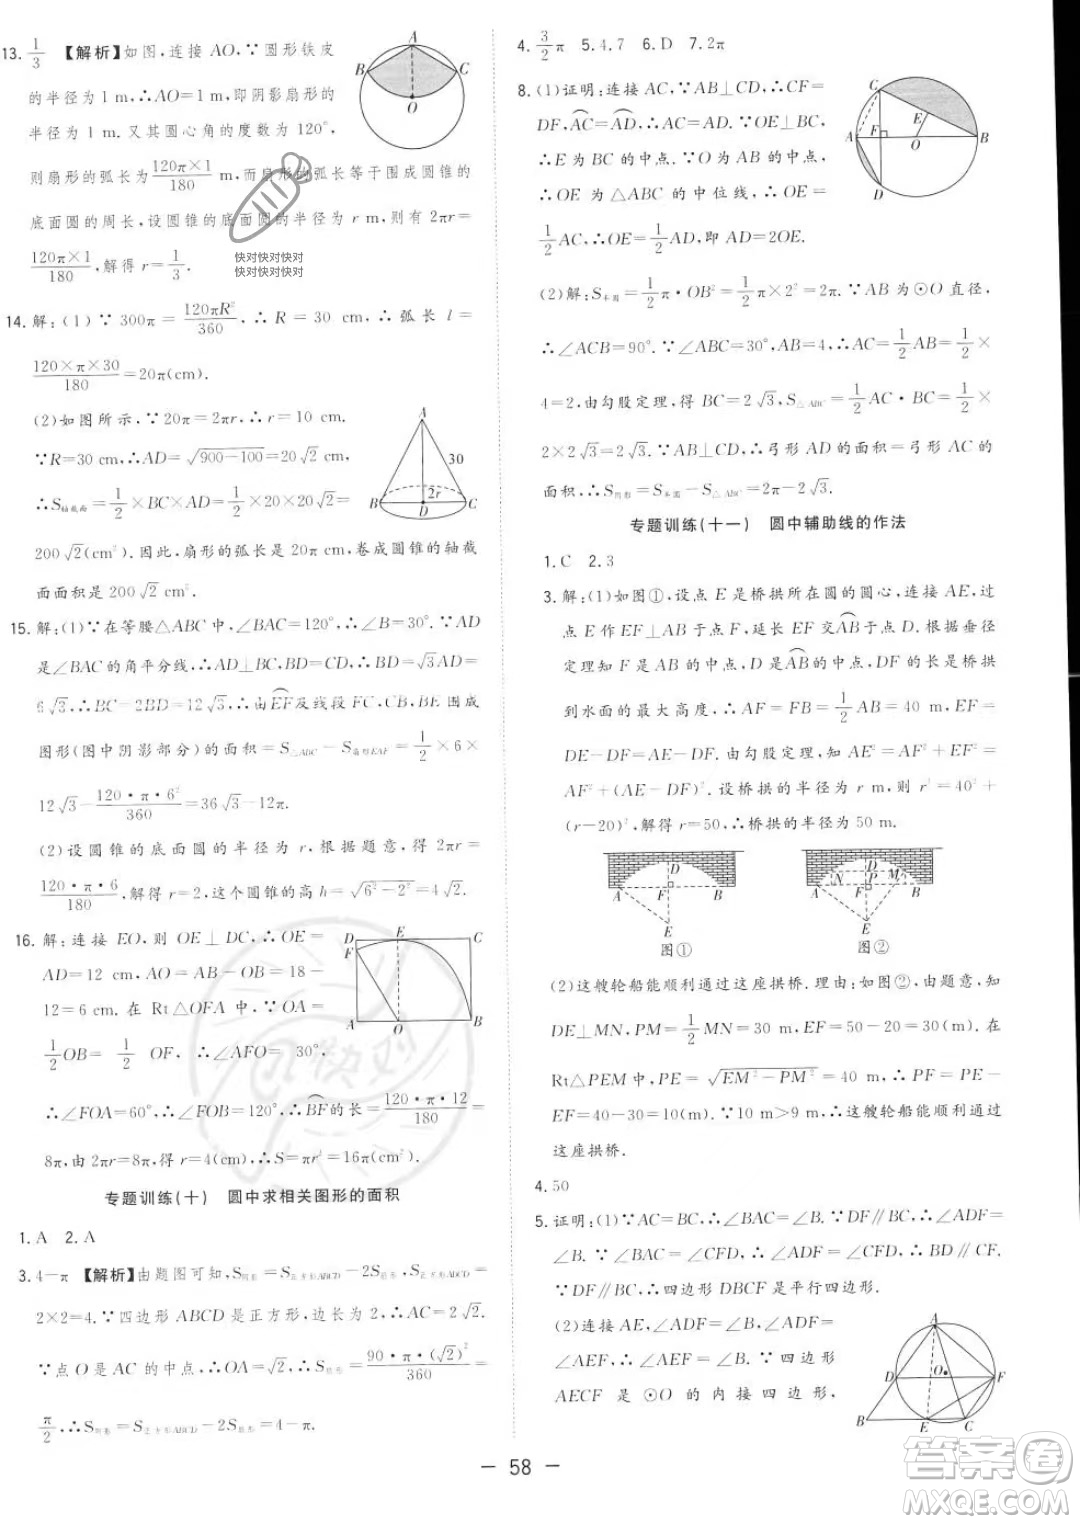 13. 1/3 【解析】如图,连接 AO,∵圆形铁皮
的半径为 1 m,∴AO=1 m,即阴影扇形的
半径为 1 m. 又其圆心角的度数为 120°,
则扇形的弧长为 120π×1/180 m,而扇形的弧长等于围成圆锥的
底面圆的周长,设圆锥的底面圆的半径为 r m,则有 2πr=
120π×1/180,解得 r=1/3.
A
B
C
O
快对快对快对
快对快对快对
14. 解:(1)∵300π=120πR²/360,∴R=30 cm,∴弧长 l=
120×π×30/180=20π(cm).
(2)如图所示,∵20π=2πr,∴r=10 cm.
∵R=30 cm,∴AD=√(900-100)=20√2(cm).
∴S轴截面=1/2×BC×AD=1/2×20×20√2=
200√2(cm²). 因此,扇形的弧长是 20π,卷成圆锥的轴截
面面积是 200√2 cm².
A
30
2r
B
D
C
15. 解:(1)∵在等腰△ABC 中,∠BAC=120°,∴∠B=30°.∵AD
是∠BAC 的角平分线,∴AD⊥BC,BD=CD,∴BD=√3AD=
6√3,∴BC=2BD=12√3,∴由EF⌒及线段 FC,CB,BE 围成
图形(图中阴影部分)的面积=S△ABC-S扇形EAF=1/2×6×
12√3-120·π·6²/360=36√3-12π.
(2)设圆锥的底面圆的半径为 r,根据题意,得 2πr=
120·π·6/180,解得 r=2,这个圆锥的高 h=√(6²-2²)=4√2.
16. 解:连接 EO,则 OE⊥DC,∴OE=
AD=12 cm,AO=AB-OB=18-
12=6 cm. 在 Rt△OFA 中,∵OA=
1/2OB= 1/2 OF,∴∠AFO= 30°,
∴∠FOA=60°,∴∠FOB=120°,∴BF⌒的长=120·π·12/180=
8π,由 2πr=8π,得 r=4(cm),∴S=πr²=16π(cm²).
D
E
C
F
A
O
B
专题训练(十) 圆中求相关图形的面积
1. A 2. A
3. 4-π 【解析】由题图可知,S阴影=S正方形ABCD-2S扇形,S正方形ABCD=
2×2=4.∵四边形 ABCD 是正方形,边长为 2,∴AC=2√2.
∵点 O 是 AC 的中点,∴OA=√2,∴S扇形=90·π·(√2)²/360=
π/2,∴S阴影=S正方形ABCD-2S扇形=4-π.
4. 3/2π 5. 4.7 6. D 7. 2π
8. (1)证明:连接 AC,∵AB⊥CD,∴CF=
DF,AC⌒=AD⌒,∴AC=AD.∵OE⊥BC,
∴E 为 BC 的中点.∵O 为 AB 的中点,
∴OE 为△ABC 的中位线,∴OE=
1/2AC,∴OE=1/2AD,即 AD=2OE.
C
E
A
F
O
B
D
(2)解:S半圆=1/2π·OB²=1/2π×2²=2π.∵AB 为⊙O 直径,
∴∠ACB=90°.∵∠ABC=30°,AB=4,∴AC=1/2AB=1/2×
4=2,由勾股定理,得 BC=2√3,S△ABC=1/2AC·BC=1/2×
2×2√3=2√3.∵AC=AD,∴弓形 AD 的面积=弓形 AC 的
面积,∴S阴影=S半圆-S△ABC=2π-2√3.
专题训练(十一) 圆中辅助线的作法
1. C 2. 3
3. 解:(1)如图①,设点 E 是桥拱所在圆的圆心,连接 AE,过
点 E 作 EF⊥AB 于点 F,延长 EF 交AB⌒于点 D. 根据垂径
定理知 F 是 AB 的中点,D 是AB⌒的中点,DF 的长是桥拱
到水面的最大高度,∴AF=FB=1/2AB=40 m,EF=
DE-DF=DE-20. 由勾股定理,知 AE²=AF²+EF²=
AF²+(DE-DF)². 设桥拱的半径为 r m,则 r²=40²+
(r-20)²,解得 r=50,∴桥拱的半径为 50 m.
D
A
F
B
E
图①
D
N
P
M
A
F
B
E
图②
(2)这艘轮船能顺利通过这座拱桥. 理由如下:如图②,由题意,知
DE⊥MN,PM=1/2MN=30 m,EF=50-20=30(m). 在
Rt△PEM 中,PE=√(EM²-PM²)=40 m,∴PF=PE-
EF=40-30=10(m).∵10 m>9 m,∴这艘轮船能顺利通过
这座拱桥.
4. 50
5. 证明:(1)∵AC=BC,∴∠BAC=∠B.∵DF∥BC,∴∠ADF=
∠B.∵∠BAC=∠CFD,∴∠ADF=∠CFD,∴BD∥CF.
∵DF∥BC,∴四边形 DBCF 是平行四边形.
(2)连接 AE,∠ADF=∠B,∠ADF=
∠AEF,∴∠AEF=∠B.∵四边形
AECF 是 ⊙O 的内接四边形,
A
D
O
F
B
E
C
— 58 —
答案卷
MXQE.COM